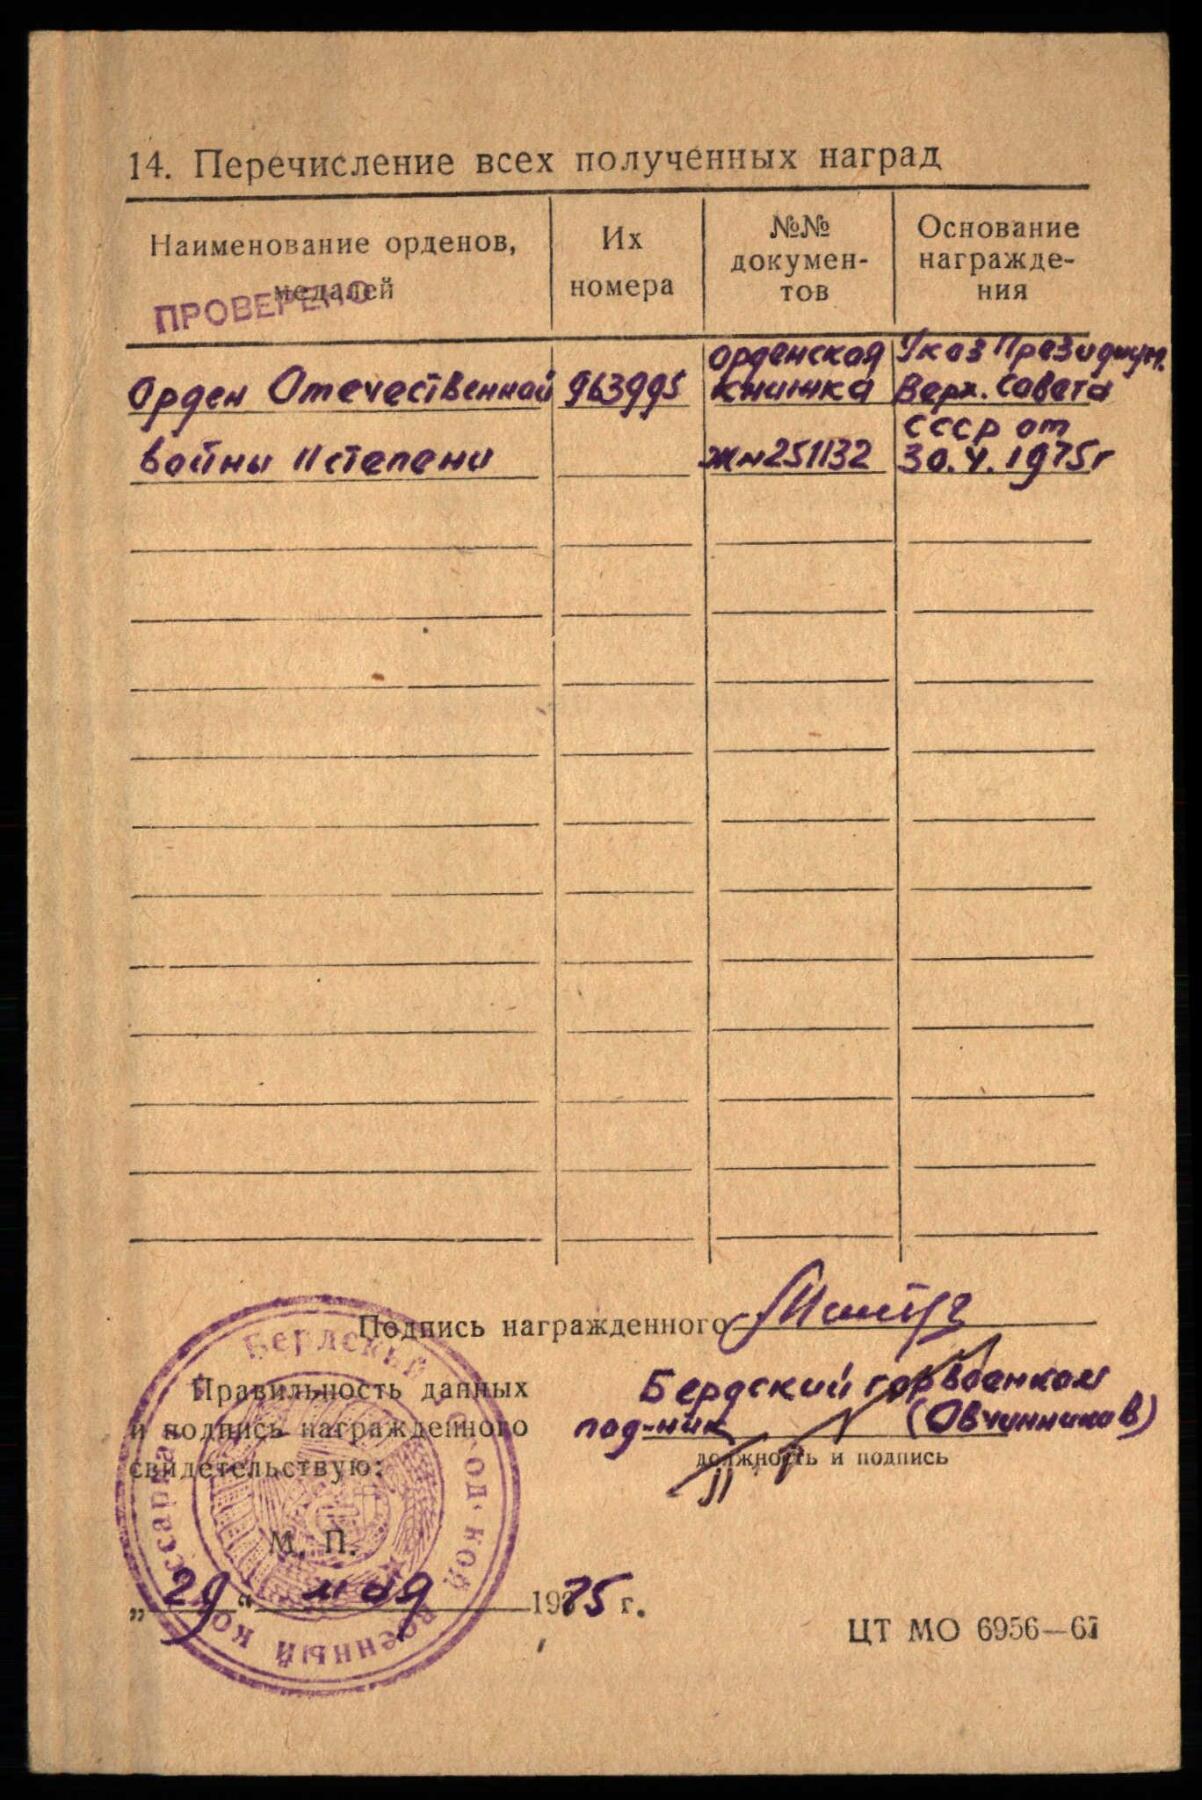 14. Перечисление всех полученных наград
Наименование орденов,
медалей
Их
номера
№№
докумен-
тов
Основание
награжде-
ния
ПРОВЕРЕНО
Орден Отечественной
войны II степени
963995
орденская
книжка
Жн251132
Указ Президиум.
Верх. Совета
СССР от
30.V.1975г
Подпись награжденного
Правильность данных
и подпись награжденного
свидетельствую:
Бердский горвоенком
под-ник (Овчинников)
должность и подпись
М. П.
„29“ мая 1975 г.
ЦТ МО 6956—67
Бердский город­ской военный комиссариат